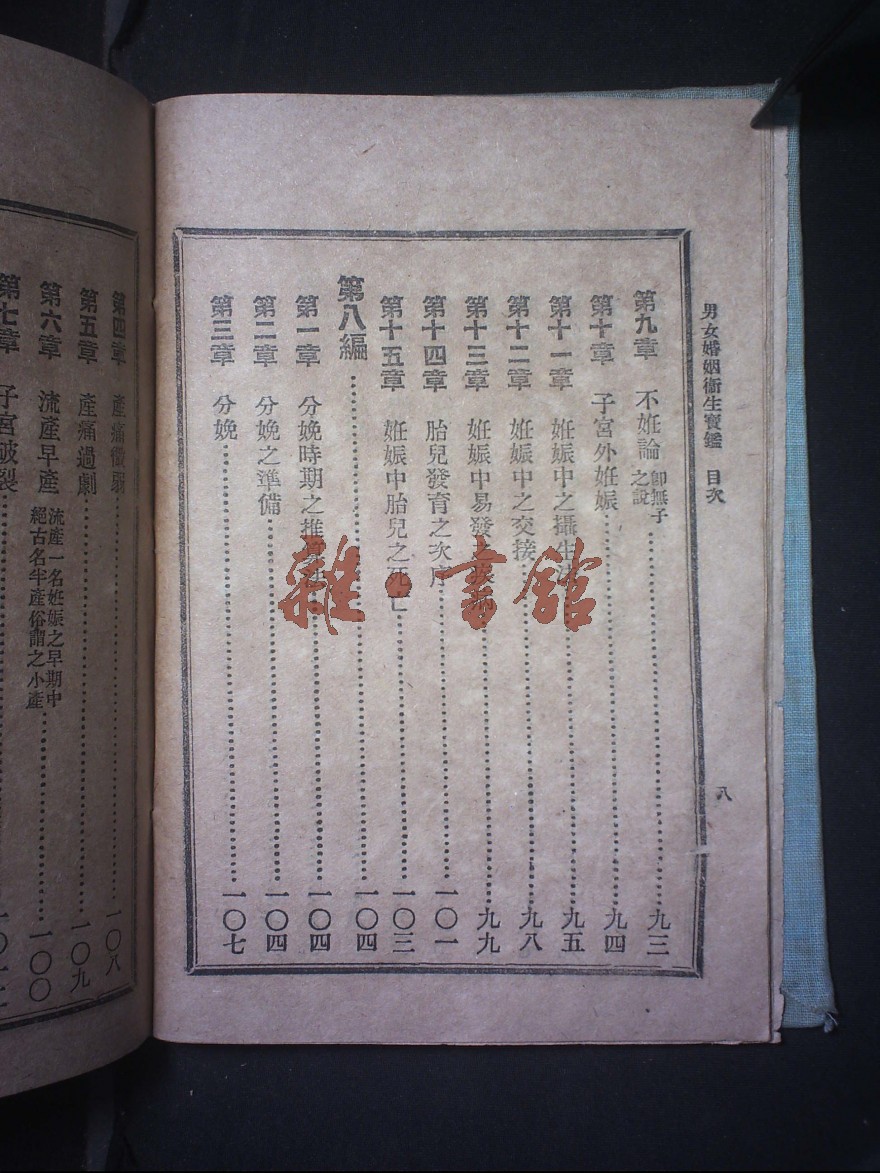 男女婚姻衞生寶鑑 目次
八
第九章 不姙論 卽無子之說 九三
第十章 子宮外姙娠 九四
第十一章 姙娠中之攝生 九五
第十二章 姙娠中之交接 九八
第十三章 姙娠中易發之 九九
第十四章 胎兒發育之次序 一〇一
第十五章 姙娠中胎兒之死亡 一〇三
第八編 一〇四
第一章 分娩時期之推算 一〇四
第二章 分娩之準備 一〇四
第三章 分娩 一〇七
第四章 產痛微弱 一〇八
第五章 產痛過劇 一〇九
第六章 流產早產 流產一名姙娠之早期中絕古名半產俗謂之小產 一〇〇
第七章 子宮破裂
雜·書館